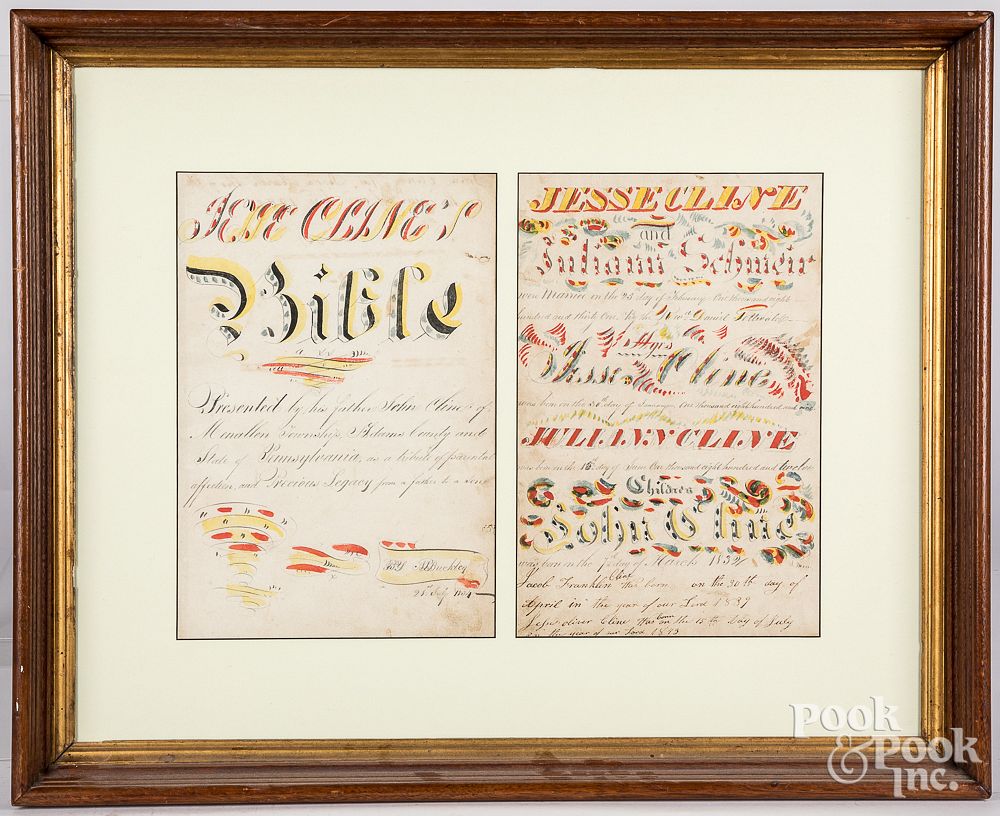 JESSE CLINE'S
Bible
Presented by his father John Cline of
Menallen Township, Adams County and
State of Pennsylvania, as a tribute of parental
affection, and Precious Legacy from a father to a
By Buckley
July
JESSE CLINE
and
Juliann Schmeir
were Married on the 25 day of February One thousand eight
hundred and thirty One, by the Daniel
Jesse Cline
was born on the day of One thousand eight hundred and
JULIANN CLINE
was born on the 16th day of June One thousand eight hundred and twelve
Children
John Cline
was born on the day of March 1832
Jacob Franklin Cline Was born on the 30th day of
April in the year of our Lord 1839
Oliver Cline Was born on the 15th Day of July
in the year of our Lord
POOK
& POOK
INC.